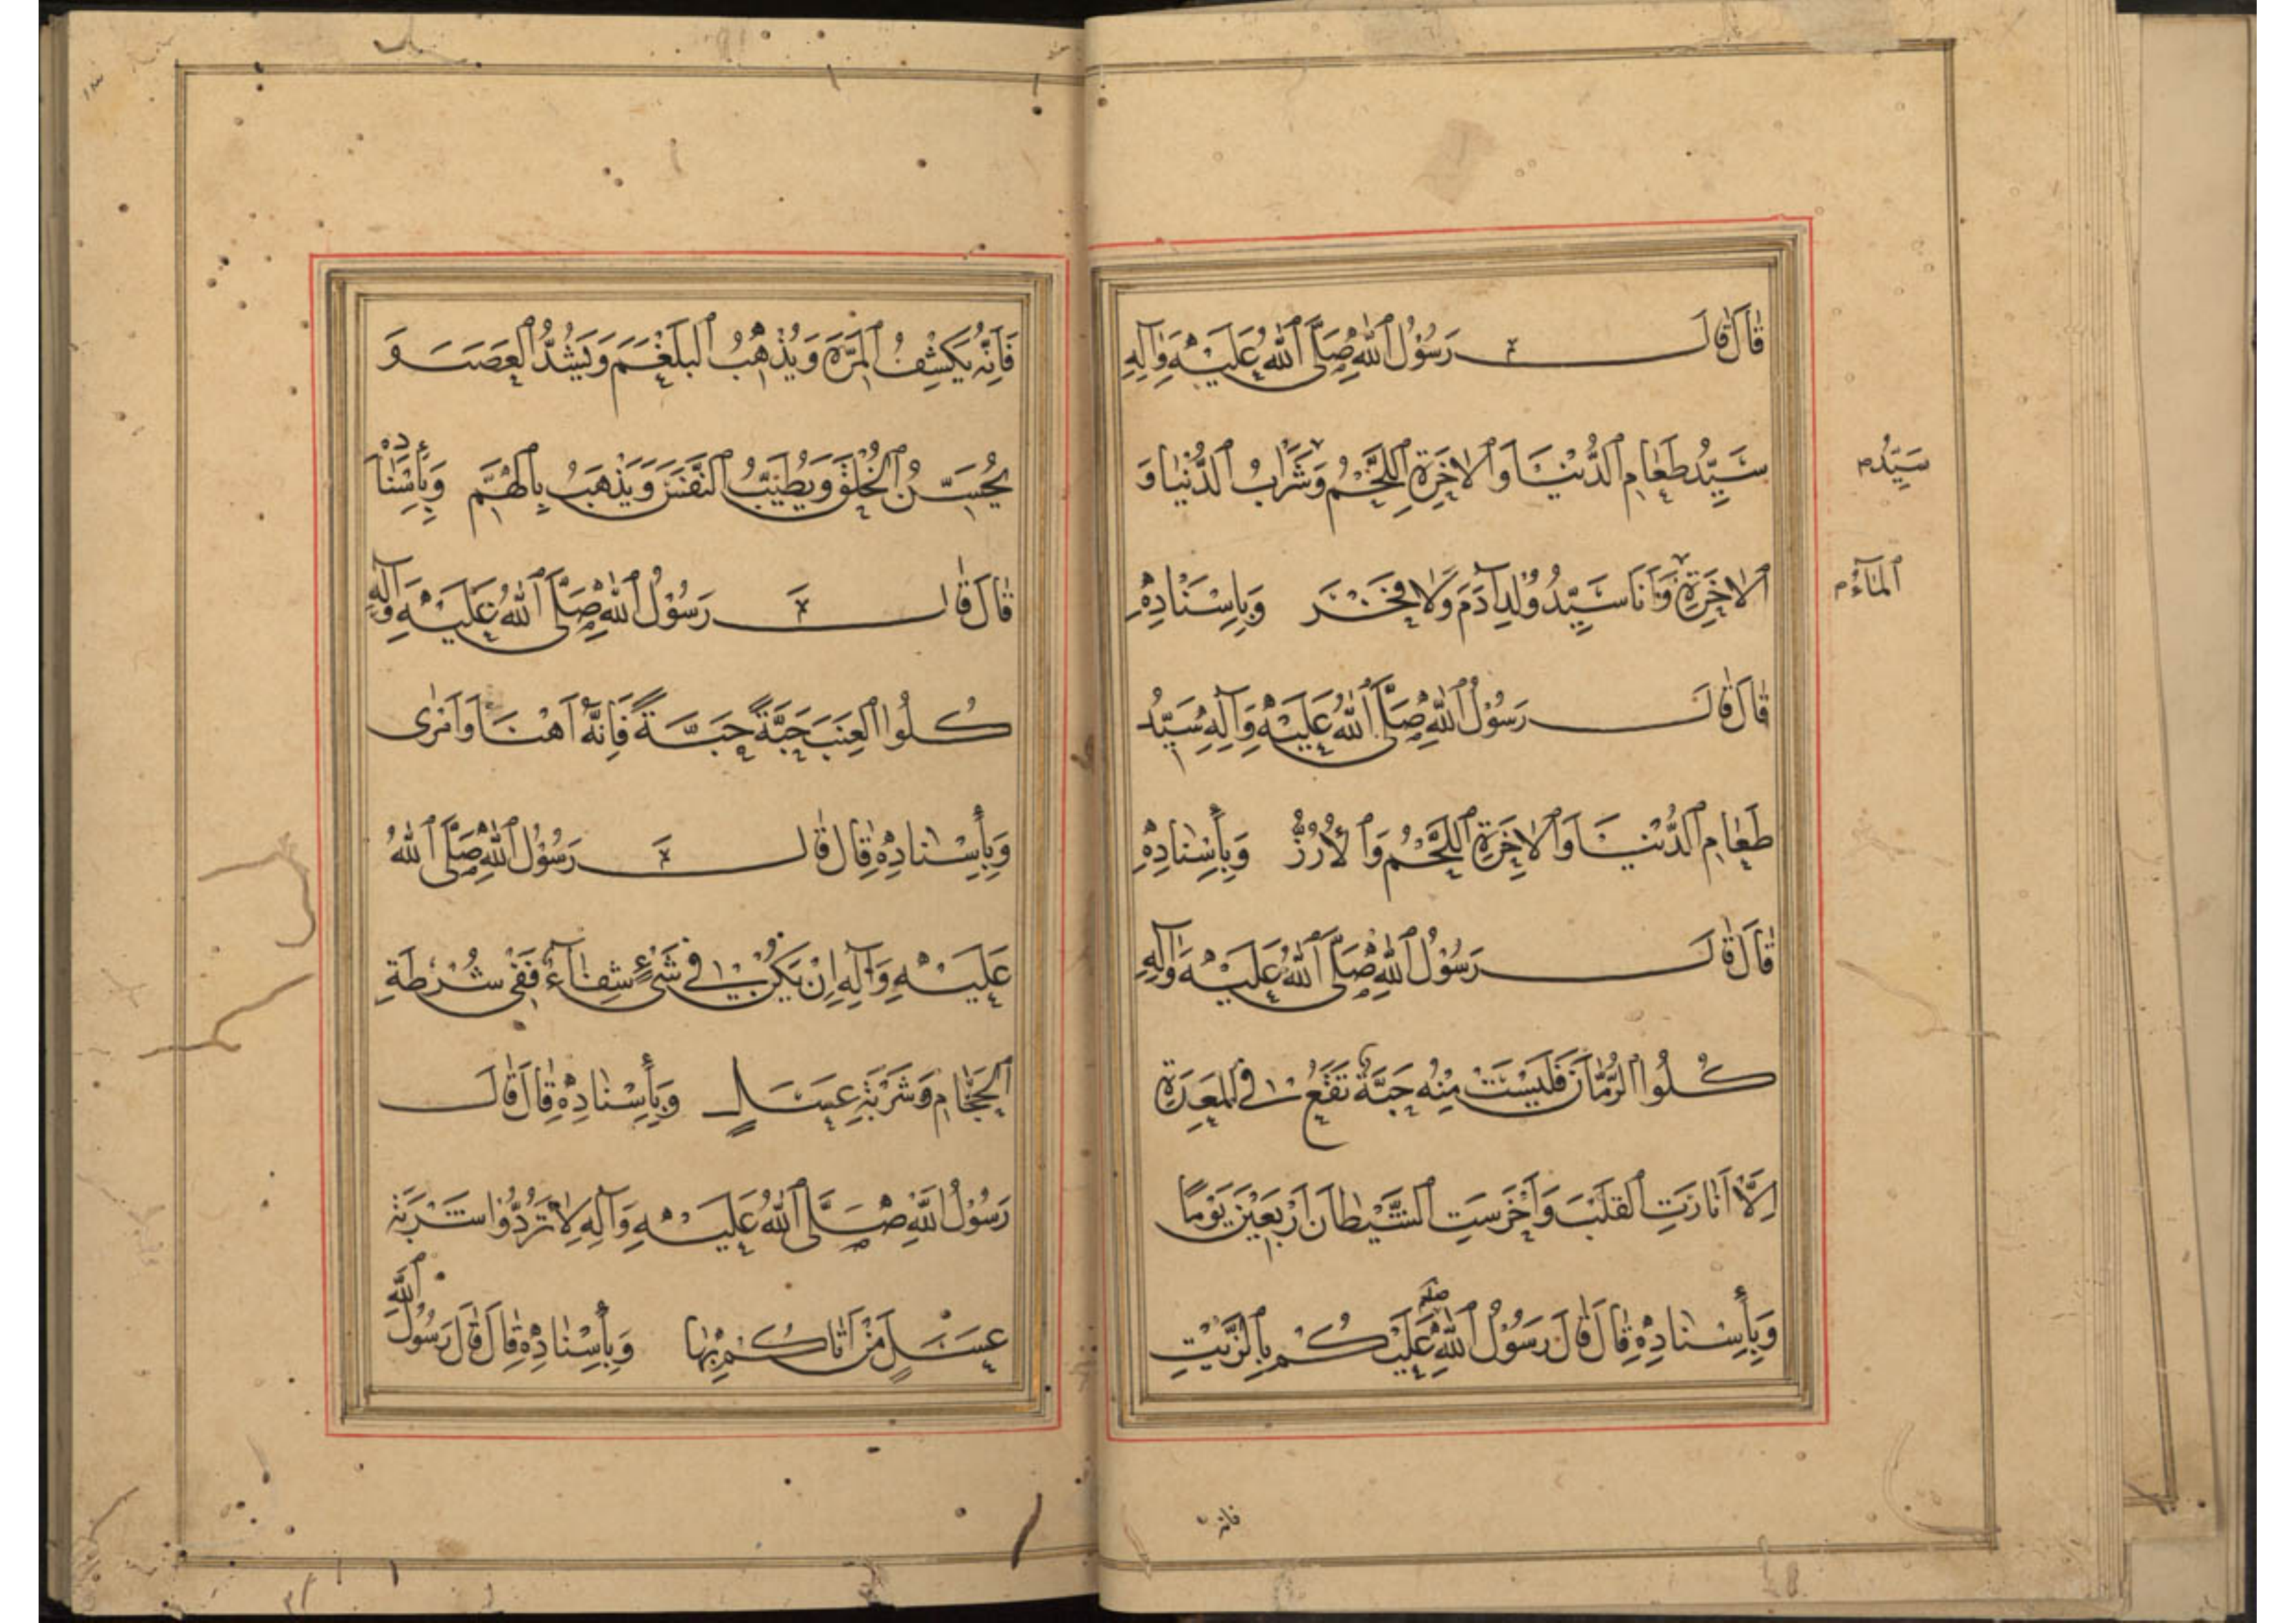 قَالَ قَالَ رَسُوْلُ اللهِ صَلَّى اللهُ عَلَيْهِ وَاٰلِهِ
سَيِّدُ طَعَامِ الدُّنْيَا وَالاخِرَةِ اللَّحْمُ وَشَرَابُ الدُّنْيَا وَ
سَيِّدُ
الاخِرَةِ وَاَنَا سَيِّدُ وُلْدِ آدَمَ وَلَا فَخْرَ وَبِاِسْنَادِهِ
الْمَآءُ
قَالَ قَالَ رَسُوْلُ اللهِ صَلَّى اللهُ عَلَيْهِ وَآلِهِ سَيِّدُ
طَعَامِ الدُّنْيَا وَالاخِرَةِ اللَّحْمُ وَالأُرُزُّ وَبِأِسْنَادِهِ
قَالَ قَالَ رَسُوْلُ اللهِ صَلَّى اللهُ عَلَيْهِ وَاٰلِهِ
كُلُوا الرُّمَّانَ فَلَيْسَتْ مِنْهُ حَبَّةٌ تَقَعُ فِي الْمَعِدَةِ
اِلَّا اَنَارَتِ القَلْبَ وَاَخْرَسَتِ الشَّيْطَانَ اَرْبَعِيْنَ يَوْمًا
وَبِأِسْنَادِهِ قَالَ قَالَ رَسُوْلُ اللهِ صلم عَلَيْكُمْ بِالزَّيْتِ
فانه
فَاِنَّهُ يَكْشِفُ الْمَرَّةَ وَيُذْهِبُ الْبَلْغَمَ وَيَشُدُّ الْعَصَبَ وَ
يُحَسِّنُ الْخُلْقَ وَيُطَيِّبُ النَّفْسَ وَيَذْهَبُ بِالْهَمِّ وَبِأِسْنَادِهِ
قَالَ قَالَ رَسُوْلُ اللهِ صَلَّى اللهُ عَلَيْهِ وَآلِهِ
كُلُوا الْعِنَبَ حَبَّةً حَبَّةً فَاِنَّهُ اَهْنَا وَاَمْرٰى
وَبِأِسْنَادِهِ قَالَ قَالَ رَسُوْلُ اللهِ صَلَّى اللهُ
عَلَيْهِ وَآلِهِ اِنْ يَكُنْ فِي شَيْءٍ شِفَآءٌ فَفِي شُرْطَةِ
الْحَجَّامِ وَشَرْبَةِ عَسَلٍ وَبِأِسْنَادِهِ قَالَ قَالَ
رَسُوْلُ اللهِ صَلَّى اللهُ عَلَيْهِ وَآلِهِ لَا تَرُدُّوْا شَرْبَةَ
عَسَلٍ مَنْ اَتَاكُمْ بِهَا وَبِأِسْنَادِهِ قَالَ قَالَ رَسُوْلُ اللهِ